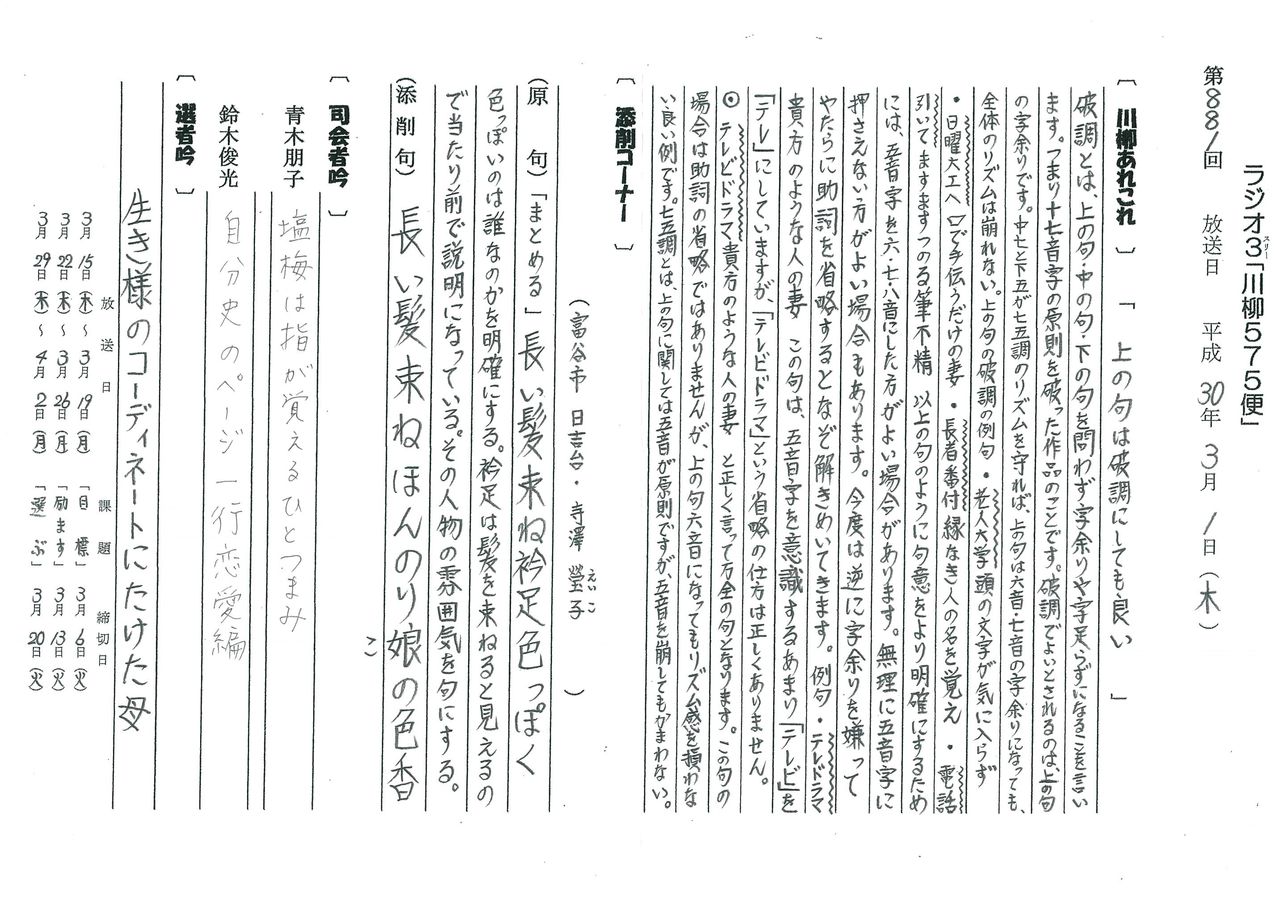 ラジオ3「川柳575便」
スリー
第881回 放送日 平成30年3月1日(木)
〔川柳あれこれ〕「上の句は破調にしても良い」
破調とは、上の句・中の句・下の句を問わず字余りや字足らずになることを言い
ます。つまり十七音字の原則を破った作品のことです。破調でよいとされるのは、上の句
の字余りです。中七と下五が七五調のリズムを守れば、上の句は六音・七音の字余りになっても、
全体のリズムは崩れない。上の句の破調の例句・老人大学頭の文字が気に入らず
・日曜大工へ口で手伝うだけの妻・長者番付縁なき人の名を覚え・電話
引いてますますつのる筆不精 以上の句のように句意をより明確にするため
には、五音字を六・七・八音にした方がよい場合があります。無理に五音字に
押さえない方がよい場合もあります。今度は逆に字余りを嫌って
やたらに助詞を省略するとなぞ解きめいてきます。例句・テレドラマ
貴方のような人の妻 この句は、五音字を意識するあまり「テレビ」を
「テレ」にしていますが、「テレビドラマ」という省略の仕方は正しくありません。
◎テレビドラマ貴方のような人の妻 と正しく言って万全の句となります。この句の
場合は助詞の省略ではありませんが、上の句六音になってもリズム感を損わな
い良い例です。七五調とは、上の句に関しては五音が原則ですが、五音を崩してもかまわない。
〔添削コーナー〕
(富谷市 日吉台・寺澤 瑩子)
えいこ
(原 句)「まとめる」長い髪束ね衿足色っぽく
色っぽいのは誰なのかを明確にする。衿足は髪を束ねると見えるの
で当たり前で説明になっている。その人物の雰囲気を句にする。
(添削句)長い髪束ねほんのり娘の色香
こ
〔司会者吟〕
青木朋子 塩梅は指が覚えるひとつまみ
鈴木俊光 自分史のページ一行恋愛編
〔選者吟〕
生き様のコーディネートにたけた母
放送日 課題 締切日
3月15日(木)〜3月19日(月)「目標」3月6日(火)
3月22日(木)〜3月26日(月)「励ます」3月13日(火)
3月29日(木)〜4月2日(月)「選ぶ」3月20日(火)